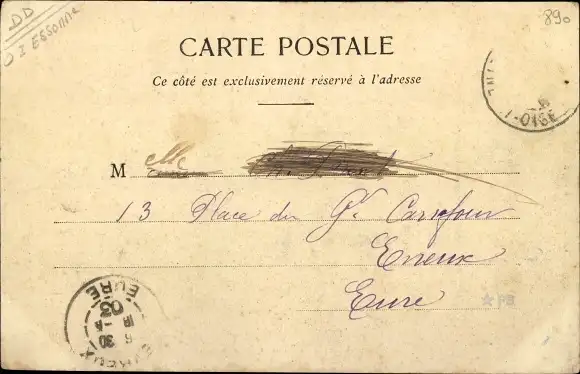 DD
D I ESSONNE
890
CARTE POSTALE
Ce côté est exclusivement réservé à l'adresse
M elle
13 Place du Gd Carrefour
Evreux
Eure
PB
OISE
EURE
6 30
03